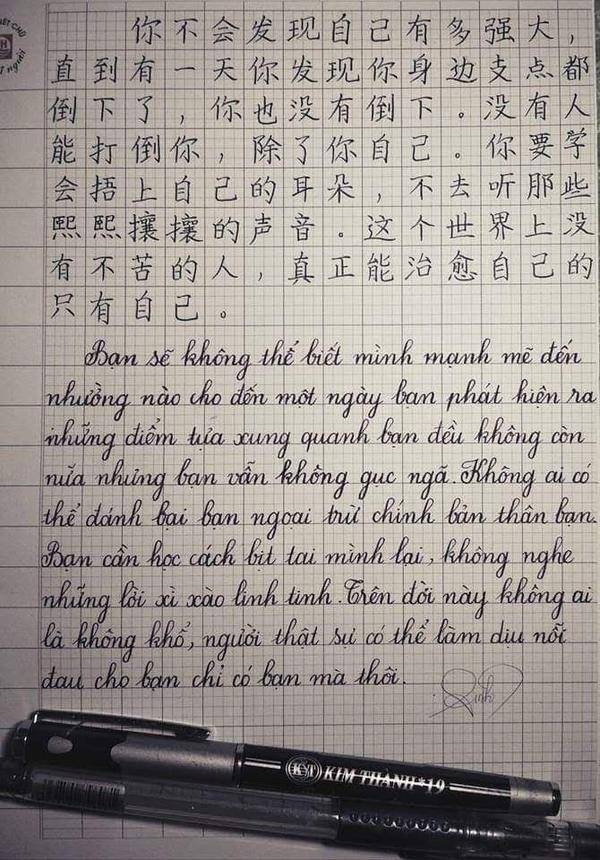 你不会发现自己有多强大，
直到有一天你发现你身边支点都
倒下了，你也没有倒下。没有人
能打倒你，除了你自己。你要学
会捂上自己的耳朵，不去听那些
熙熙攘攘的声音。这个世界上没
有不苦的人，真正能治愈自己的
只有自己。
Bạn sẽ không thể biết mình mạnh mẽ đến
nhường nào cho đến một ngày bạn phát hiện ra
những điểm tựa xung quanh bạn đều không còn
nữa nhưng bạn vẫn không gục ngã. Không ai có
thể đánh bại bạn ngoại trừ chính bản thân bạn.
Bạn cần học cách bịt tai mình lại, không nghe
những lời xì xào linh tinh. Trên đời này không ai
là không khổ, người thật sự có thể làm dịu nỗi
đau cho bạn chỉ có bạn mà thôi.
KT KIM THANH*19